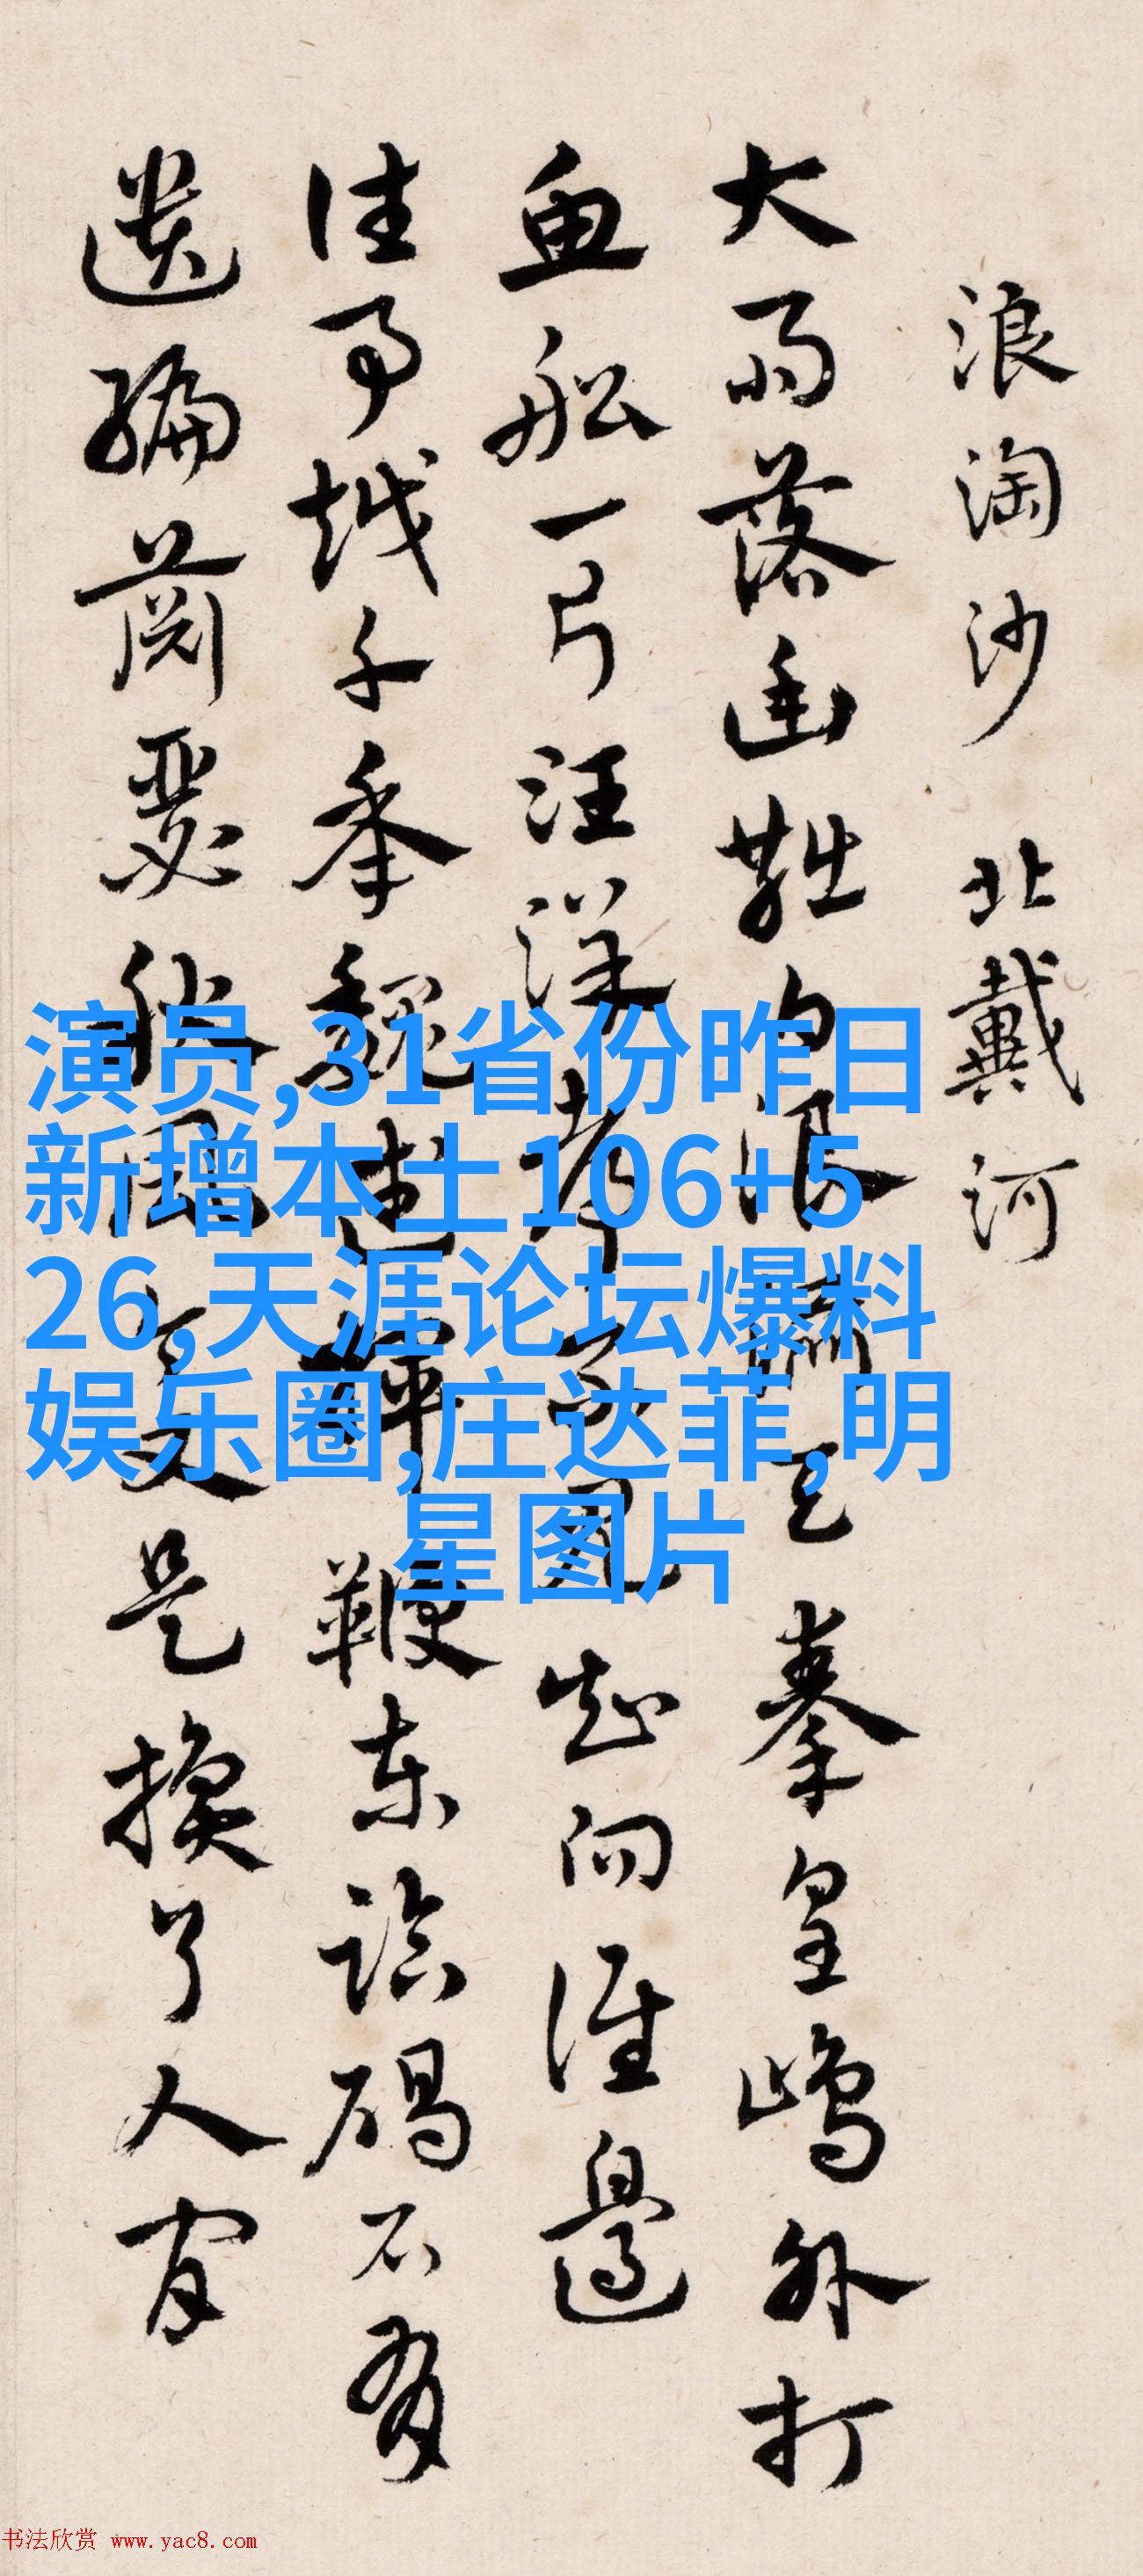 浪淘沙 北戴河
大雨落幽燕白浪滔天秦皇島外打
魚船一片汪洋都不見知向誰邊
往事越千年魏武揮鞭東臨碣石有
遺編蕭瑟秋風今又是換了人间
演员,31省份昨日
新增本土106+5
26,天涯论坛爆料
娱乐圈,庄达菲,明
星图片
书法欣赏 www.yac8.com